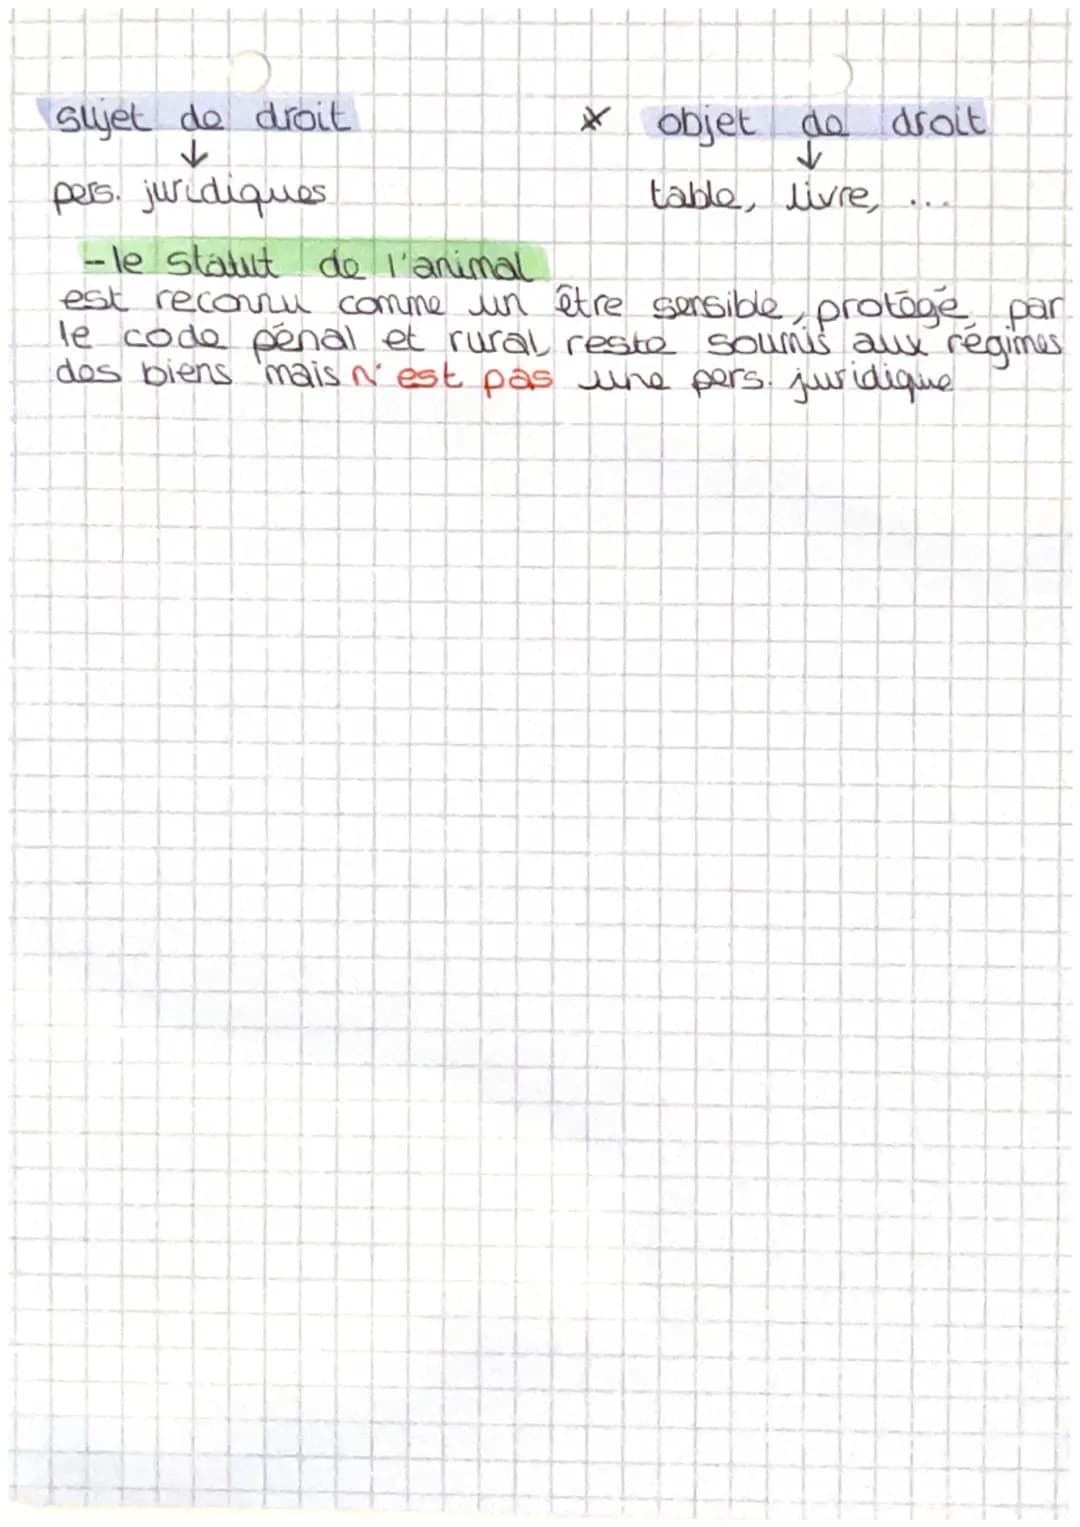 sujet de droit * objet de droit
↓ ↓
pers. juridiques table, livre, ...
- le statut de l'animal
est reconnu comme un être sensible, protégé par
le code pénal et rural, reste soumis aux régimes
des biens mais n'est pas une pers. juridique